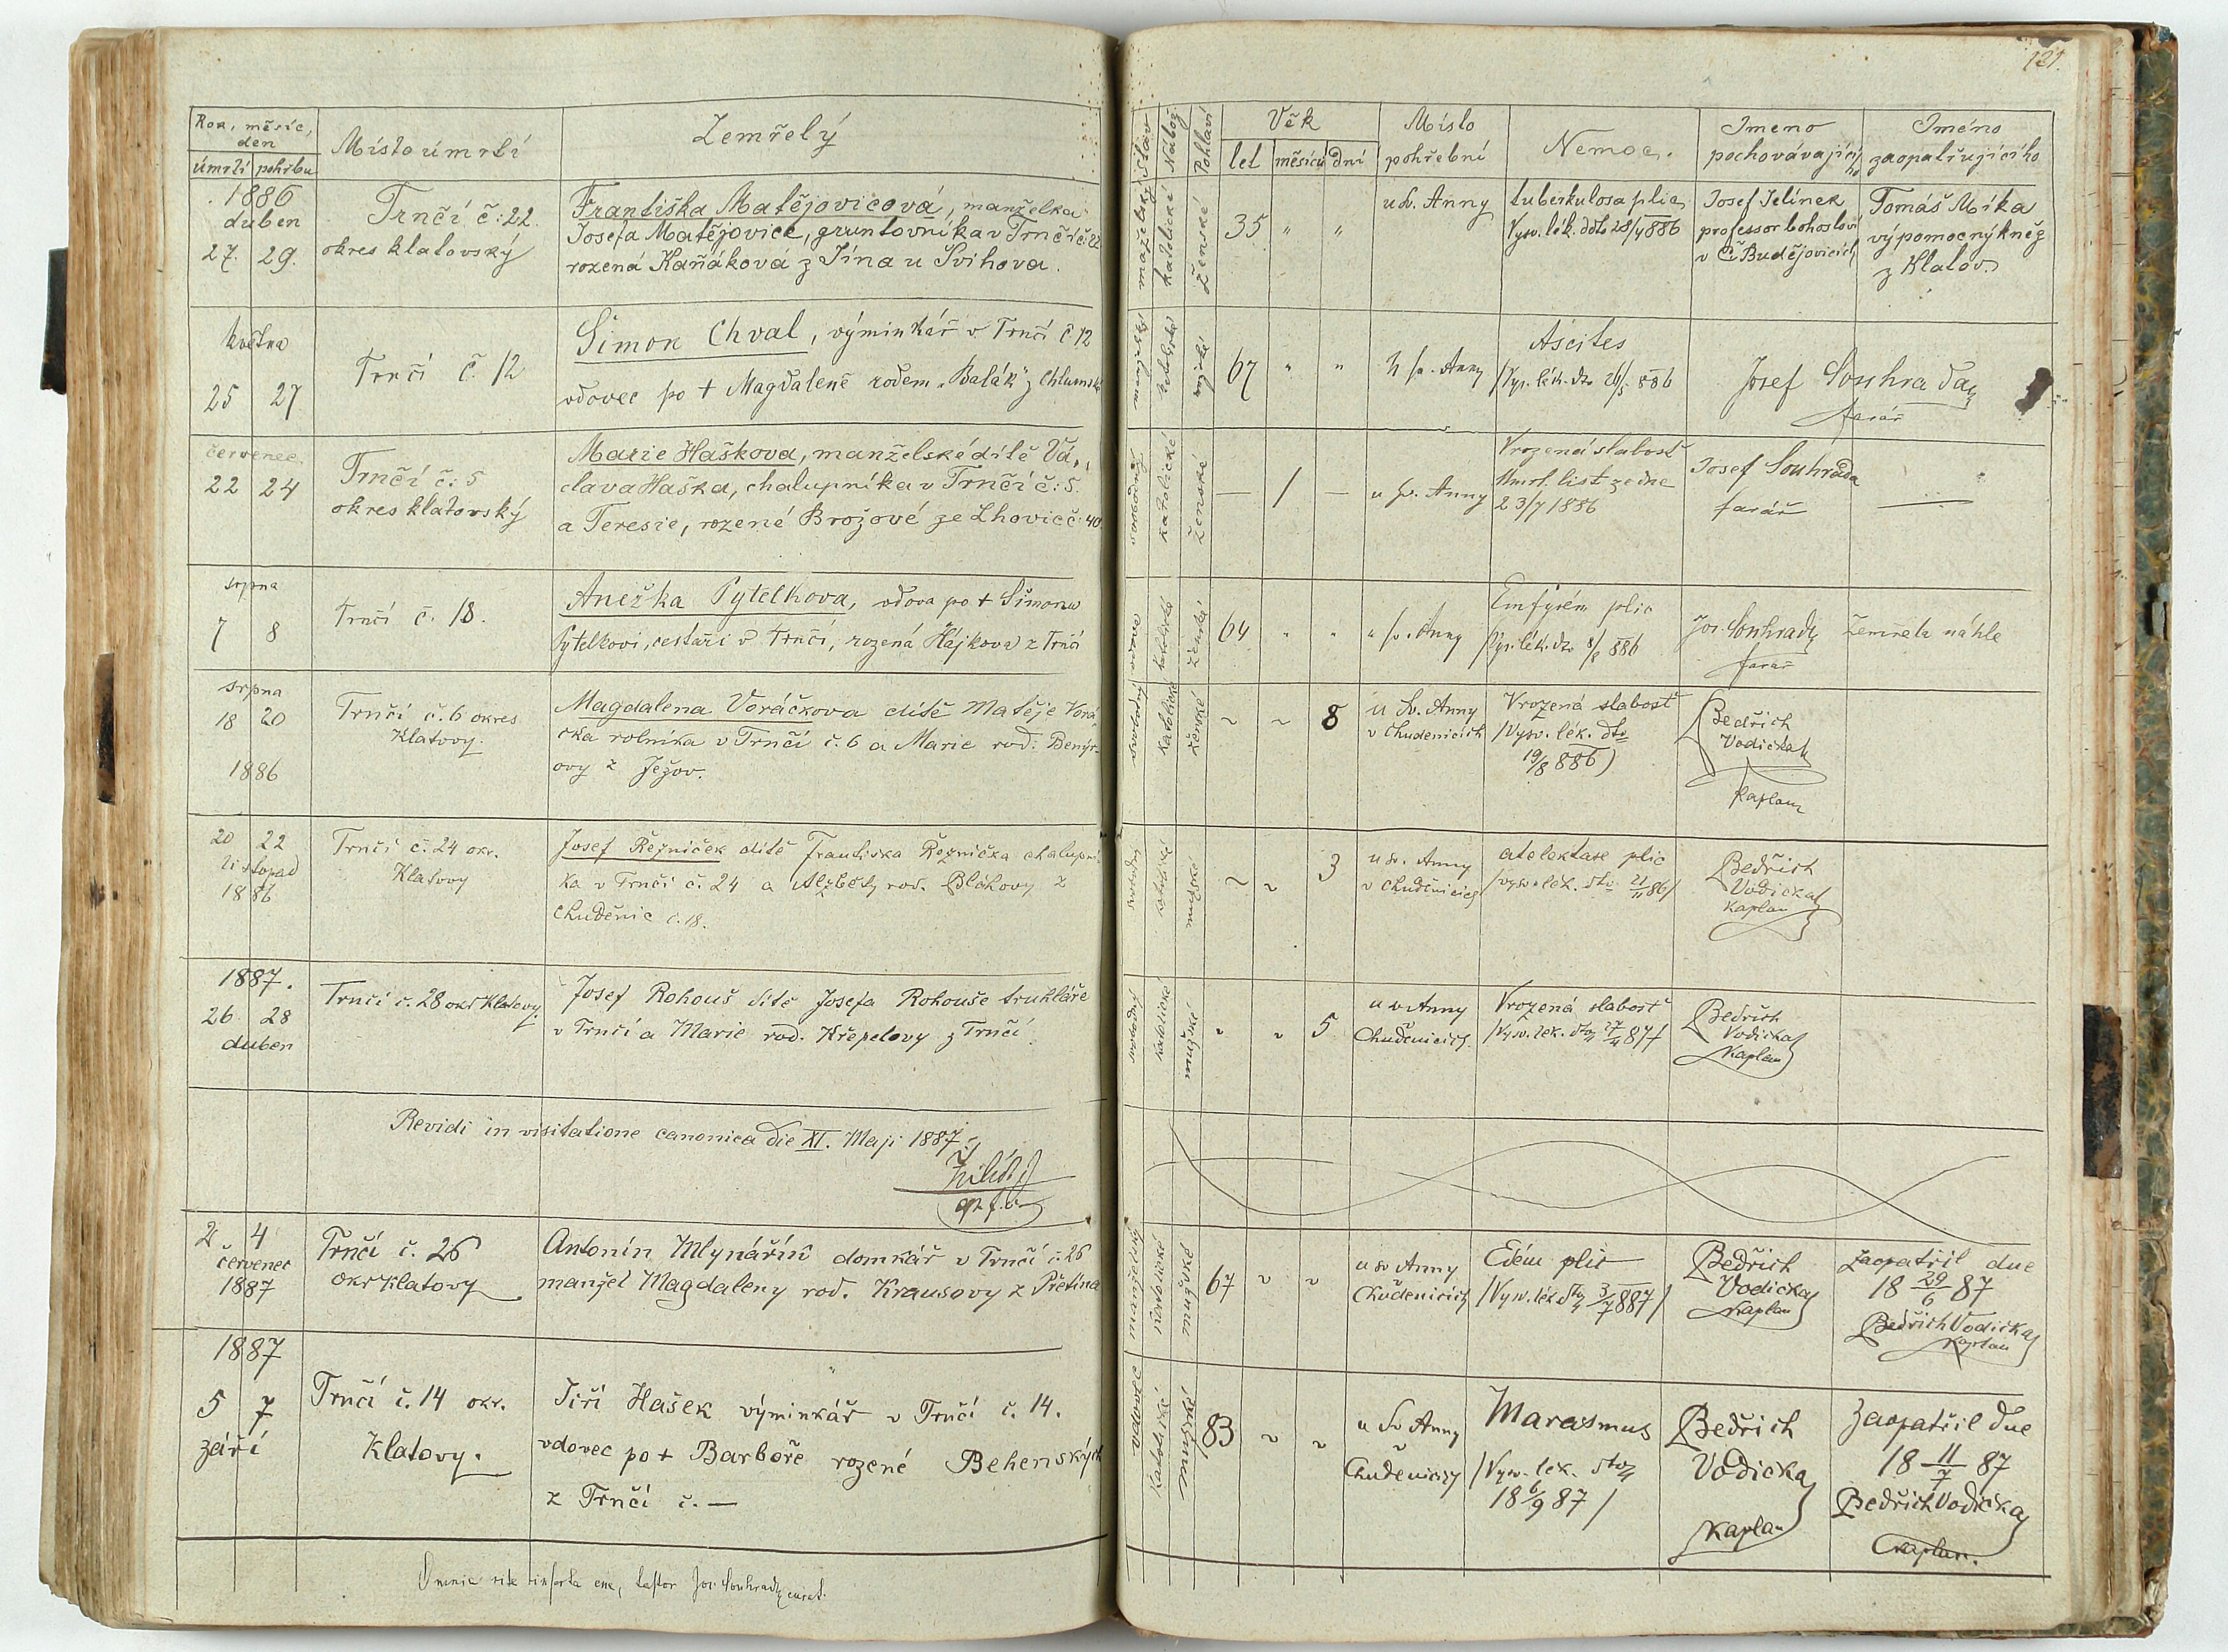 121.
Rok, měsíc,
den
úmrtí pohřbu
Místo úmrtí
Zemřelý
Stav
Nábož.
Pohlaví
Věk
let měsíců dní
Místo
pohřební
Nemoc.
Jmeno
pochovávajícího
Jméno
zaopatřujícího
1886
duben
27. 29.
Trnčí č: 22.
okres klatovský
Františka Matějovicova, manželka
Josefa Matějovice, gruntovníka v Trnčí č: 22
rozená Kaňákova z Jína u Švihova.
manželský
katolické
Ženské
35 " "
u Sv. Anny
tuberkulosa plic
Vysv. lék. ddto 28/4 886
Josef Jelínek
professor bohosloví
v Č. Budějovicích
Tomáš Míka
výpomocný kněz
z Klatov.
května
25 27
Trnčí č. 12
Šimon Chval, výminkář v Trnčí č 12
vdovec po + Magdaleně rodem „Balák" z Chlumska
67 " "
u sv. Anny
Ascites
/Vys. lék. dto 26/5 886
Josef Souhrada
farář
červenec
22 24
Trnčí č: 5
okres klatovský
Marie Haškova, manželské dítě Vá-
clava Haška, chalupníka v Trnčí č: 5.
a Teresie, rozené Brožové ze Lhovic č: 40
svobodný
Katolické
Ženské
— 1 —
u sv. Anny
Vrozená slabost
Úmrt. list ze dne
23/7 1886
Josef Souhrada
farář
—
srpna
7 8
Trnčí č. 18.
Anežka Pytelkova, vdova po + Šimonu
Pytelkovi, cestáři v Trnčí, rozená Hájkova z Trnčí
vdova
katolické
ženské
64 " "
u sv. Anny
Emfysém plic
/Vys. lék. dto 8/8 886
Jos. Souhrada
farář
Zemřela náhle
srpna
18 20
1886
Trnčí č. 6 okres
Klatovy.
Magdalena Voráčkova dítě Matěje Vorá-
čka rolníka v Trnčí č. 6 a Marie roď. Benýr-
ovy z Ježov.
svobodný
katolické
ženské
~ ~ 8
u Sv. Anny
v Chudenicích
Vrozená slabost
/Vysv. lék. dto
19/8 886)
Bedřich
Vodička
kaplan
20 22
listopad
1886
Trnčí č. 24 okr.
Klatovy
Josef Řezníček dítě Františka Řezníčka chalupní-
ka v Trnčí č. 24 a Alžběty rod. Bláhovy z
Chuděnic č. 18.
svobodný
katolické
mužské
~ ~ 3
u sv. Anny
v Chuděnicích
atelektase plic
/vysv. lék. dto 21/11 86/
Bedřich
Vodička
Kaplan
1887.
26 28
duben
Trnčí č. 28 okr Klatovy.
Josef Rohouš dítě Josefa Rohouše truhláře
v Trnčí a Marie rod. Křepelovy z Trnčí.
svobodný
katolické
mužské
" ~ 5
u sv Anny
Chuděnicích.
Vrozená slabost
/Vysv. lék. dto 27/4 87/
Bedřich
Vodička
Kaplan
Revidi in visitatione canonica die XI. Maji 1887
2 4
červenec
1887
Trnčí č. 26
okr Klatovy
Antonín Mlynářík domkář v Trnčí č. 26
manžel Magdaleny rod. Krausovy z Přetína
manželský
Katolické
mužské
67 ~ ~
u sv Anny
Chuďenicích
Edém plic
/Vysv. lék. dto 3/7 887/
Bedřich
Vodička
Kaplan
Zaopatřil dne
18 29/6 87
Bedřich Vodička
Kaplan
1887
5 7
září
Trnčí č. 14 okr.
Klatovy.
Jiří Hašek výminkář v Trnčí č. 14.
vdovec po + Barboře rozené Behenských
z Trnčí č. —
vdovec
katolické
mužské
83 ~ ~
u Sv Anny
Chuděnicích
Marasmus
/Vysv. lék. dto
18 6/9 87/
Bedřich
Vodička
Kaplan
Zaopatřil dne
18 11/7 87
Bedřich Vodička
Kaplan.
Omnia rite Jos. Souhrada